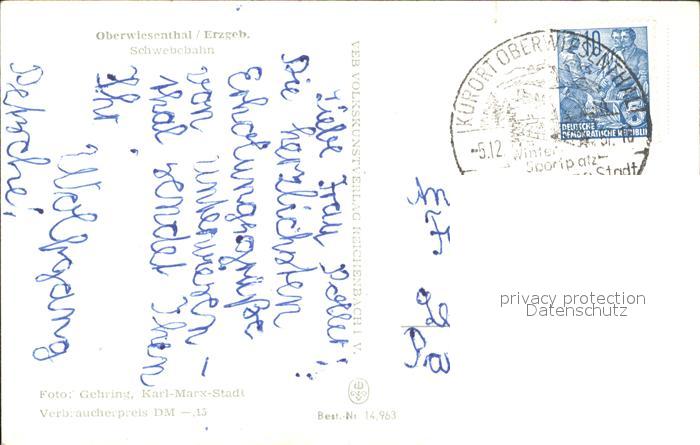 Oberwiesenthal / Erzgeb.
Schwebebahn
Liebe Frau
Die herzlichsten
Erholungsgrüße
von unterwiesen-
thal sendet Ihnen
Ihr Wolfgang
VEB VOLKSKUNSTVERLAG REICHENBACH I. V.
KURORT OBERWIESENTHAL
-5.12
Winter
Sportplatz
Stadt
10
5
DEUTSCHE
DEMOKRATISCHE REPUBLIK
privacy protection
Datenschutz
Foto: Gehring, Karl-Marx-Stadt
Verbraucherpreis DM -,15
Best.-Nr 14,963